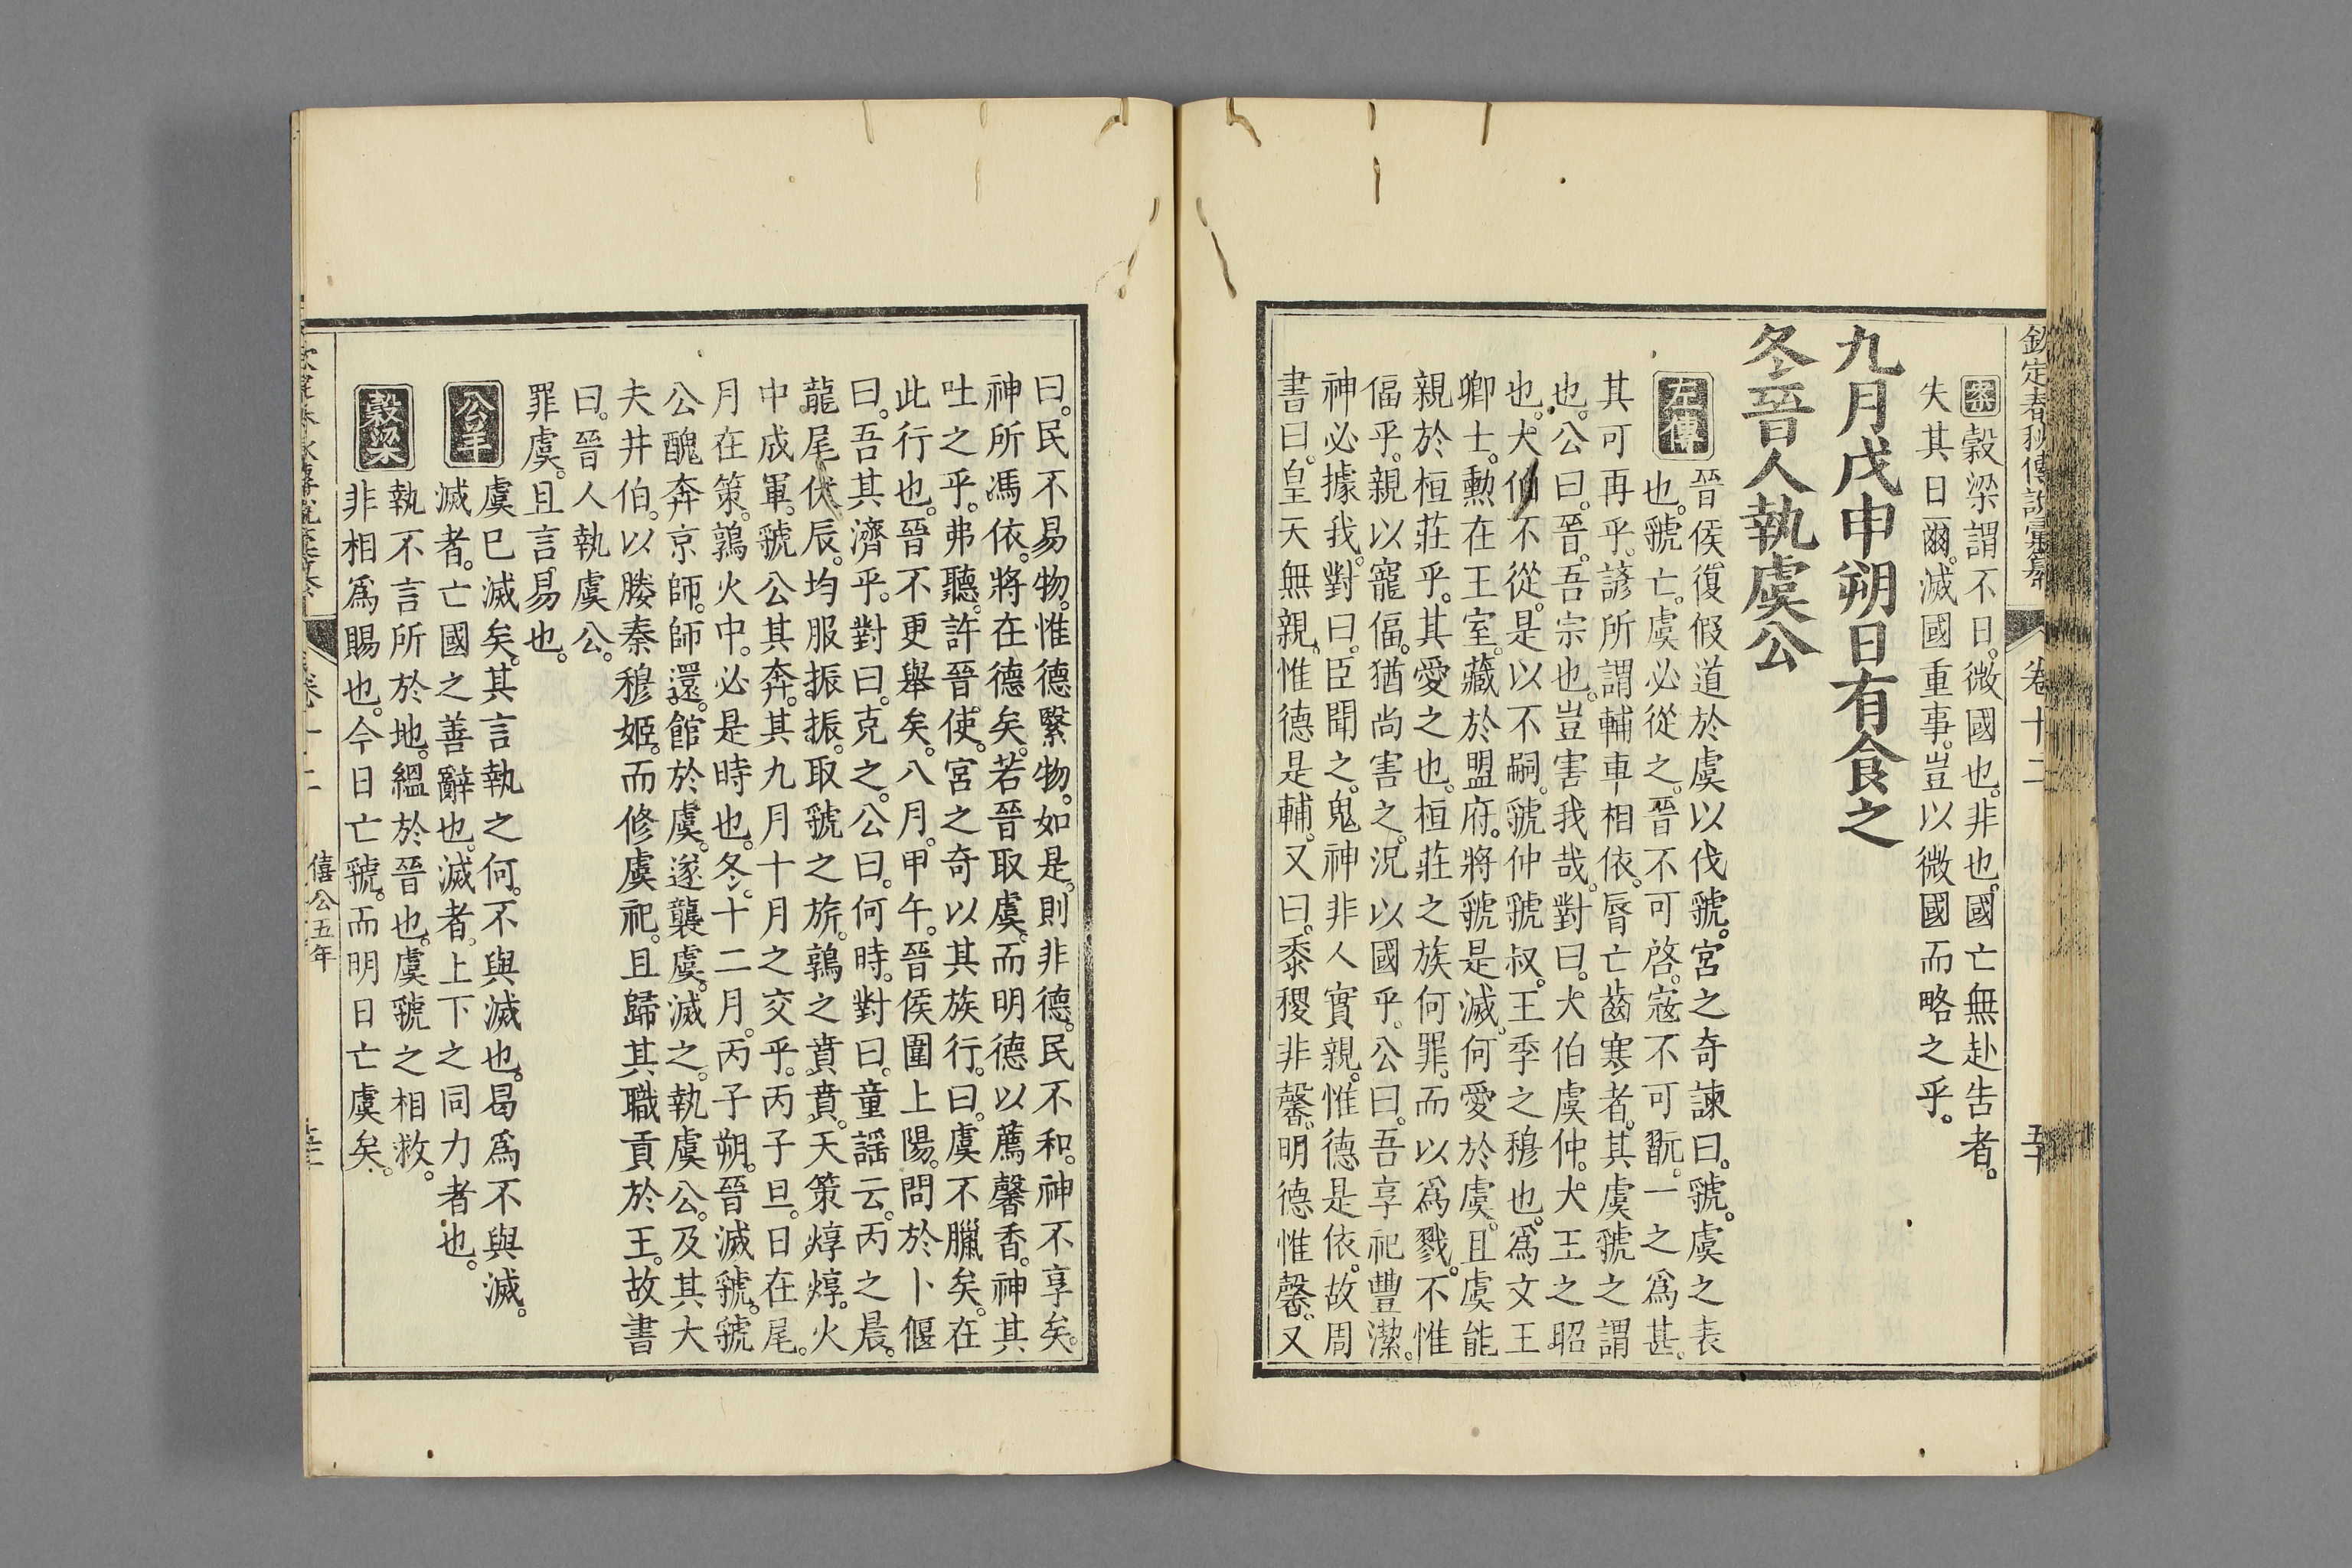 欽定春秋傳說彙纂 卷十二
案 穀梁謂不日。微國也。非也。國亡無赴告者。
失其日爾。滅國重事。豈以微國而略之乎。
九月戊申朔日有食之
冬晉人執虞公
左傳
晉侯復假道於虞以伐虢。宮之奇諫曰。虢。虞之表
也。虢亡。虞必從之。晉不可啓。寇不可翫。一之爲甚。
其可再乎。諺所謂輔車相依。脣亡齒寒者。其虞虢之謂
也。公曰。晉。吾宗也。豈害我哉。對曰。大伯虞仲。大王之昭
也。大伯不從。是以不嗣。虢仲虢叔。王季之穆也。爲文王
卿士。勲在王室。藏於盟府。將虢是滅。何愛於虞。且虞能
親於桓莊乎。其愛之也。桓莊之族何罪。而以爲戮。不惟
偪乎。親以寵偪。猶尚害之。況以國乎。公曰。吾享祀豐潔。
神必據我。對曰。臣聞之。鬼神非人實親。惟德是依。故周
書曰。皇天無親。惟德是輔。又曰。黍稷非馨。明德惟馨。又
曰。民不易物。惟德繄物。如是。則非德。民不和。神不享矣。
神所馮依。將在德矣。若晉取虞。而明德以薦馨香。神其
吐之乎。弗聽。許晉使。宮之奇以其族行。曰。虞不臘矣。在
此行也。晉不更舉矣。八月。甲午。晉侯圍上陽。問於卜偃
曰。吾其濟乎。對曰。克之。公曰。何時。對曰。童謠云。丙之晨。
龍尾伏辰。均服振振。取虢之旂。鶉之賁賁。天策焞焞。火
中成軍。虢公其奔。其九月十月之交乎。丙子旦。日在尾。
月在策。鶉火中。必是時也。冬。十二月。丙子朔。晉滅虢。虢
公醜奔京師。師還。館於虞。遂襲虞。滅之。執虞公。及其大
夫井伯。以媵秦穆姬。而修虞祀。且歸其職貢於王。故書
曰。晉人執虞公。
罪虞。且言易也。
公羊
虞已滅矣。其言執之何。不與滅也。曷爲不與滅。
滅者。亡國之善辭也。滅者。上下之同力者也。
穀梁
執不言所於地。縕於晉也。虞虢之相救。
非相爲賜也。今日亡虢。而明日亡虞矣。
僖公五年